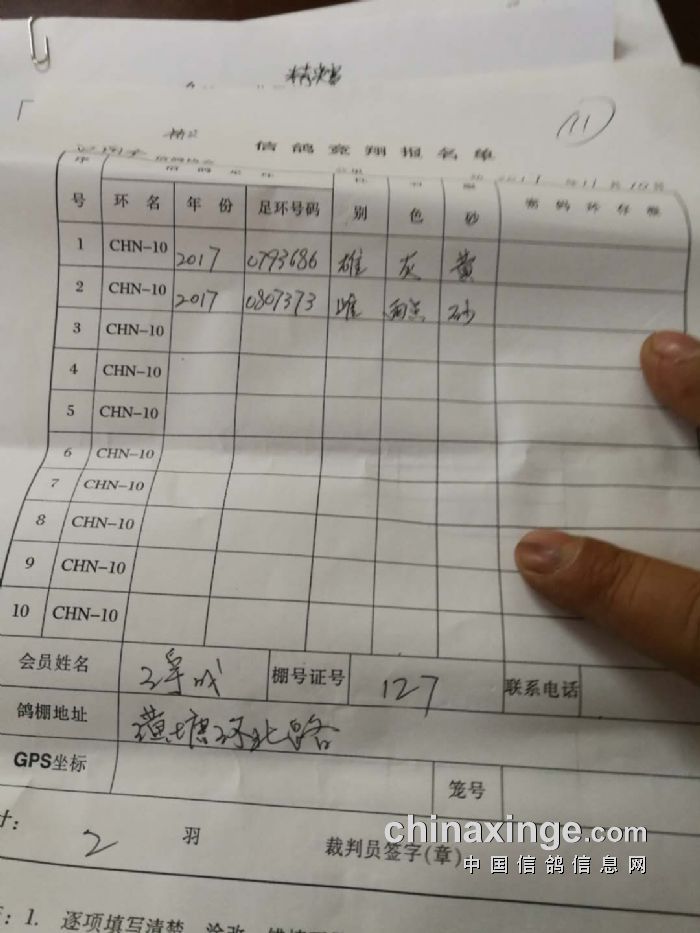 信鸽竞翔报名单
(11)
序号 环名 年份 足环号码 性别 羽色 眼砂
1 CHN-10 2017 0793686 雄 灰 黄
2 CHN-10 2017 0807373 雌 雨点 砂
3 CHN-10
4 CHN-10
5 CHN-10
6 CHN-10
7 CHN-10
8 CHN-10
9 CHN-10
10 CHN-10
会员姓名 棚号证号 127 联系电话
鸽棚地址 黄塘河北路
GPS坐标 笼号
计: 2 羽 裁判员签字(章)
chinaxinge.com
中国信鸽信息网
: 1. 逐项填写清楚